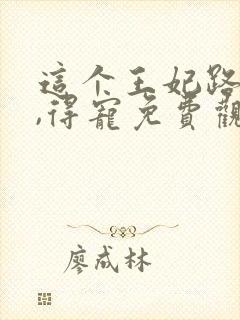 這个王妃路
,得寵免費觀
廖成林